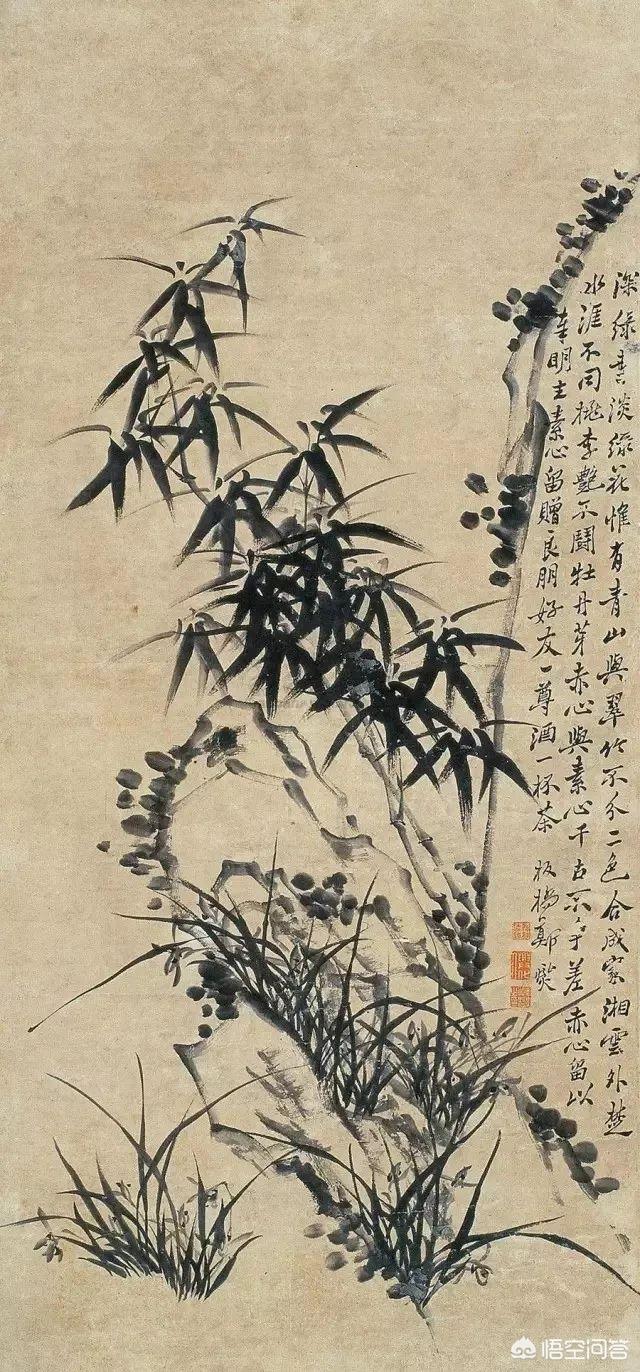 深綠葉淡綠花惟有青山與翠竹不分二色合成家湘雲外楚
水涯不同桃李艷不鬪牡丹芽赤心與素心千古不争差赤心留以
奉明主素心留贈良朋好友一尊酒一杯茶 板橋鄭燮
悟空问答